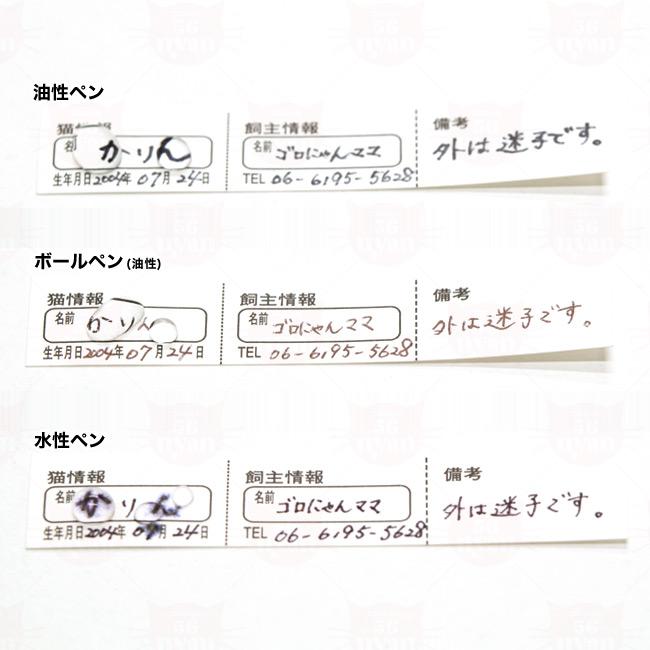 油性ペン
猫情報 飼主情報 備考
名 かりん 名前 ゴロにゃんママ 外は迷子です。
生年月日2004年07月24日 TEL 06-6195-5628
ボールペン (油性)
猫情報 飼主情報 備考
名前 かりん 名前 ゴロにゃんママ 外は迷子です。
生年月日2004年07月24日 TEL 06-6195-5628
水性ペン
猫情報 飼主情報 備考
名前 かりん 名前 ゴロにゃんママ 外は迷子です。
生年月日2004年07月24日 TEL 06-6195-5628